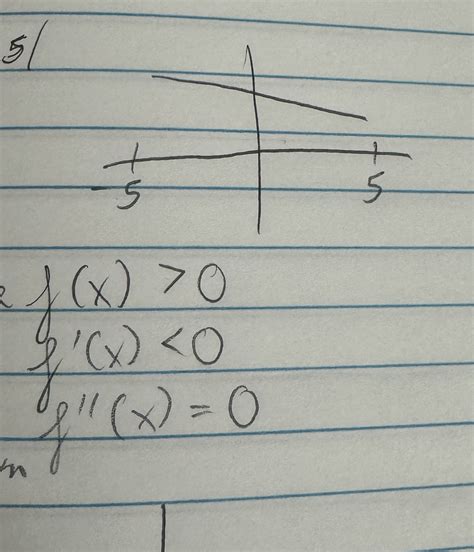 5/
-5 5
f(x) > 0
f'(x) < 0
f''(x) = 0